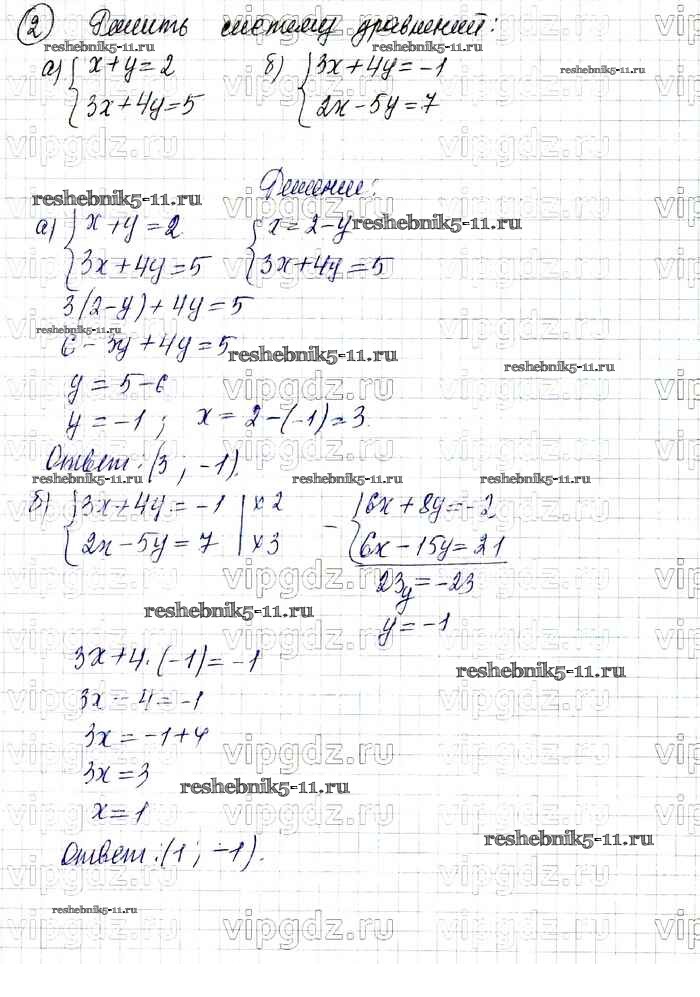 2 Решить систему уравнений:
reshebnik5-11.ru reshebnik5-11.ru
а) { x+y=2 б) { 3x+4y=-1
reshebnik5-11.ru
3x+4y=5 2x-5y=7
vipgdz.ru vipgdz.ru vipgdz.ru
Решение:
reshebnik5-11.ru
vipgdz.ru vipgdz.ru
а) { x+y=2 { x=2-y reshebnik5-11.ru
3x+4y=5 3x+4y=5
3(2-y)+4y=5
reshebnik5-11.ru
vipgdz.ru vipgdz.ru
6-3y+4y=5
reshebnik5-11.ru
reshebnik5-11.ru
y=5-6
vipgdz.ru vipgdz.ru
y=-1; x=2-(-1)=3.
Ответ: (3; -1).
reshebnik5-11.ru reshebnik5-11.ru reshebnik5-11.ru
б) { 3x+4y=-1 | ×2 - { 6x+8y=-2
2x-5y=7 | ×3 6x-15y=21
vipgdz.ru vipgdz.ru
23y=-23
reshebnik5-11.ru
y=-1
3x+4·(-1)=-1
reshebnik5-11.ru
3x-4=-1
vipgdz.ru vipgdz.ru
3x=-1+4
3x=3
reshebnik5-11.ru
x=1
vipgdz.ru vipgdz.ru
reshebnik5-11.ru
Ответ: (1; -1).
vipgdz.ru vipgdz.ru
reshebnik5-11.ru
vipgdz.ru vipgdz.ru